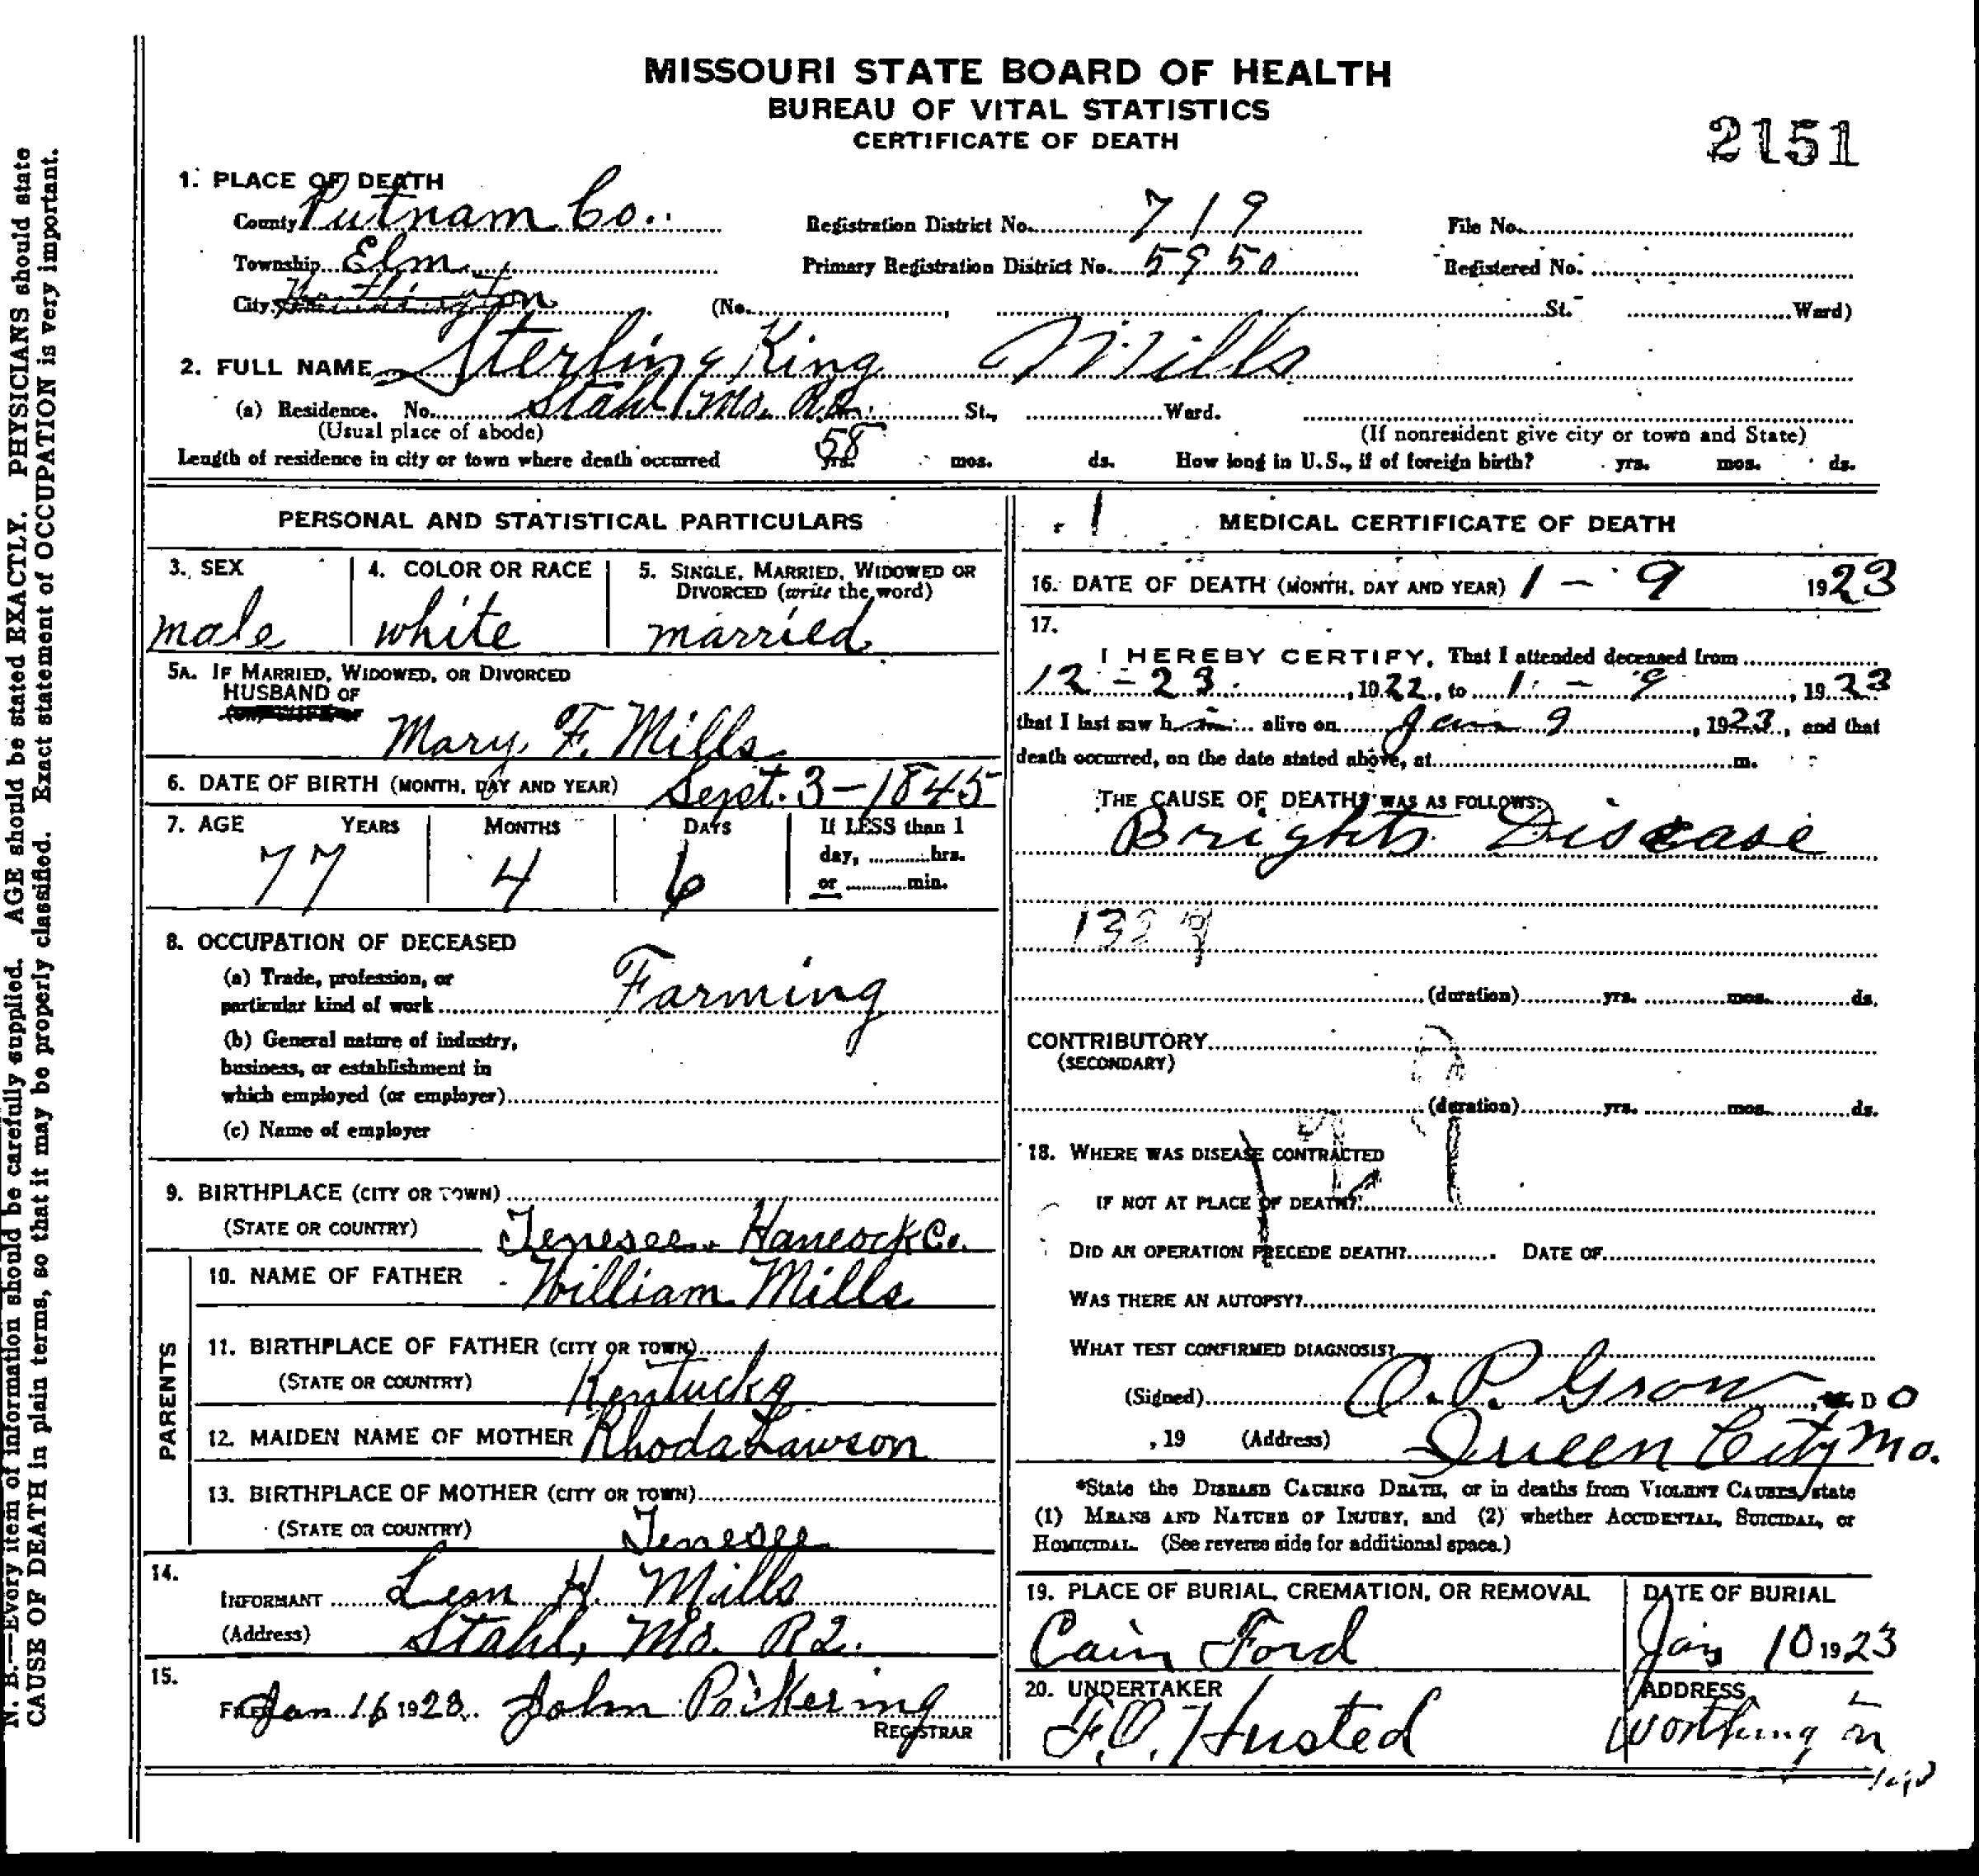 MISSOURI STATE BOARD OF HEALTH
BUREAU OF VITAL STATISTICS
CERTIFICATE OF DEATH
2151
1. PLACE OF DEATH
County Putnam Co. Registration District No. 719 File No.
Township Elm Primary Registration District No. 5950 Registered No.
City (No. , St. Ward)
2. FULL NAME Sterling King Mills
(a) Residence. No. Stahl, Mo. R2. St., Ward.
(Usual place of abode) (If nonresident give city or town and State)
Length of residence in city or town where death occurred 58 yrs. mos. ds. How long in U.S., if of foreign birth? yrs. mos. ds.
PERSONAL AND STATISTICAL PARTICULARS
3. SEX 4. COLOR OR RACE 5. SINGLE, MARRIED, WIDOWED OR
DIVORCED (write the word)
male white married
5A. IF MARRIED, WIDOWED, OR DIVORCED
HUSBAND OF
Mary F. Mills
6. DATE OF BIRTH (MONTH, DAY AND YEAR) Sept. 3-1845
7. AGE YEARS MONTHS DAYS If LESS than 1
day, hrs.
77 4 6 or min.
8. OCCUPATION OF DECEASED
(a) Trade, profession, or
particular kind of work Farming
(b) General nature of industry,
business, or establishment in
which employed (or employer)
(c) Name of employer
9. BIRTHPLACE (CITY OR TOWN)
(STATE OR COUNTRY) Tenesee. Hancock Co.
PARENTS
10. NAME OF FATHER William Mills
11. BIRTHPLACE OF FATHER (CITY OR TOWN)
(STATE OR COUNTRY) Kentucky
12. MAIDEN NAME OF MOTHER Rhoda Lawson
13. BIRTHPLACE OF MOTHER (CITY OR TOWN)
(STATE OR COUNTRY) Tenesee
14.
INFORMANT Lem H. Mills
(Address) Stahl, Mo. R2.
15.
FILED Jan 16 1923. John Pickering
REGISTRAR
MEDICAL CERTIFICATE OF DEATH
16. DATE OF DEATH (MONTH, DAY AND YEAR) 1 - 9 1923
17.
I HEREBY CERTIFY, That I attended deceased from
12-23, 1922, to 1 - 9, 1923
that I last saw him alive on Jan 9, 1923, and that
death occurred, on the date stated above, at m.
THE CAUSE OF DEATH* WAS AS FOLLOWS:
Brights Disease
(duration) yrs. mos. ds.
CONTRIBUTORY
(SECONDARY)
(duration) yrs. mos. ds.
18. WHERE WAS DISEASE CONTRACTED
IF NOT AT PLACE OF DEATH?
DID AN OPERATION PRECEDE DEATH? DATE OF
WAS THERE AN AUTOPSY?
WHAT TEST CONFIRMED DIAGNOSIS?
(Signed) O. P. Grow, D O
, 19 (Address) Queen City Mo.
*State the DISEASE CAUSING DEATH, or in deaths from VIOLENT CAUSES, state
(1) MEANS AND NATURE OF INJURY, and (2) whether ACCIDENTAL, SUICIDAL, or
HOMICIDAL. (See reverse side for additional space.)
19. PLACE OF BURIAL, CREMATION, OR REMOVAL DATE OF BURIAL
Cain Ford Jan 10 1923
20. UNDERTAKER ADDRESS
F.O. Husted Worthington
N. B.—Every item of information should be carefully supplied. AGE should be stated EXACTLY. PHYSICIANS should state
CAUSE OF DEATH in plain terms, so that it may be properly classified. Exact statement of OCCUPATION is very important.